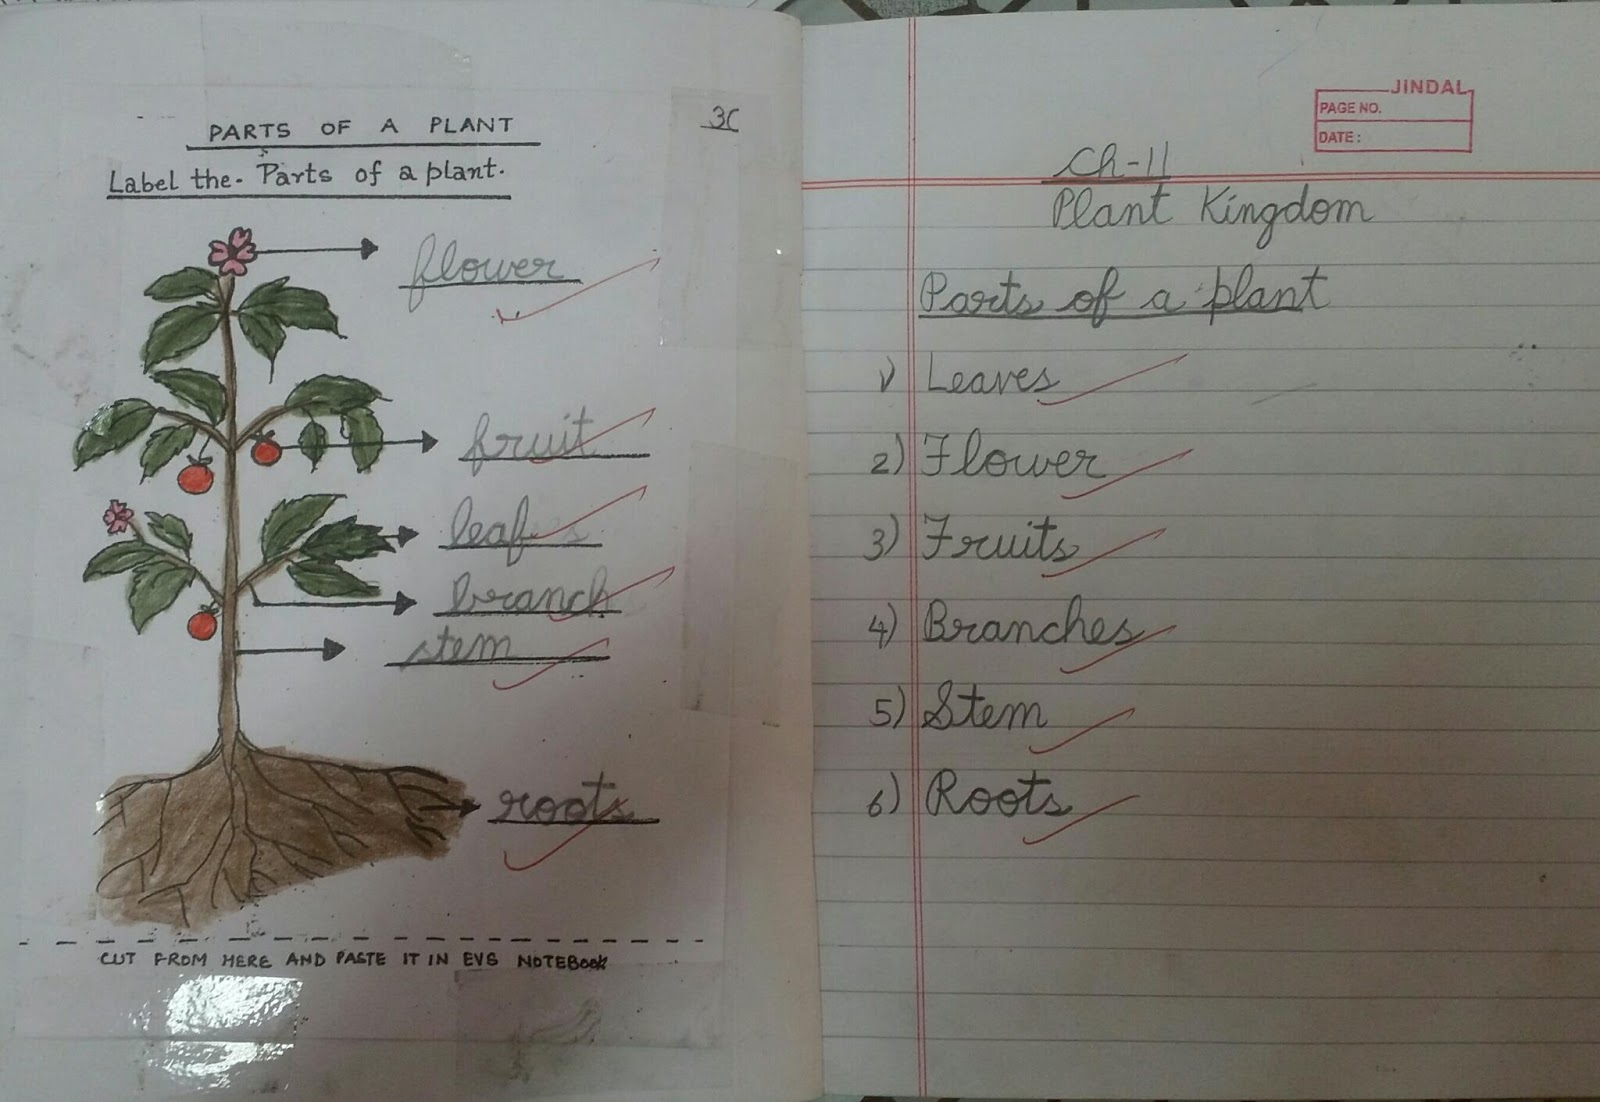 PARTS OF A PLANT
3C
Label the. Parts of a plant.
flower
fruit
leaf
branch
stem
roots
CUT FROM HERE AND PASTE IT IN EVS NOTEBOOK
JINDAL
PAGE NO.
DATE:
Ch-11
Plant Kingdom
Parts of a plant
1) Leaves
2) Flower
3) Fruits
4) Branches
5) Stem
6) Roots